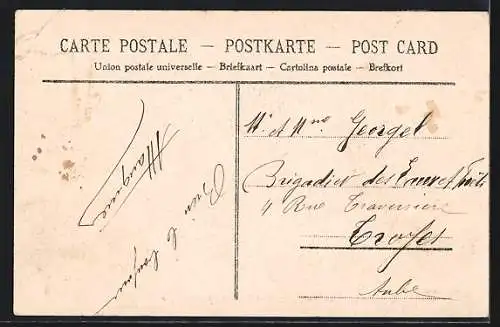 CARTE POSTALE — POSTKARTE — POST CARD
Union postale universelle — Briefkaart — Cartolina postale — Brefkort
Mr et Mme Georget
Brigadier des Eaux et Forêts
4 Rue Traversière
Troyes
Aube